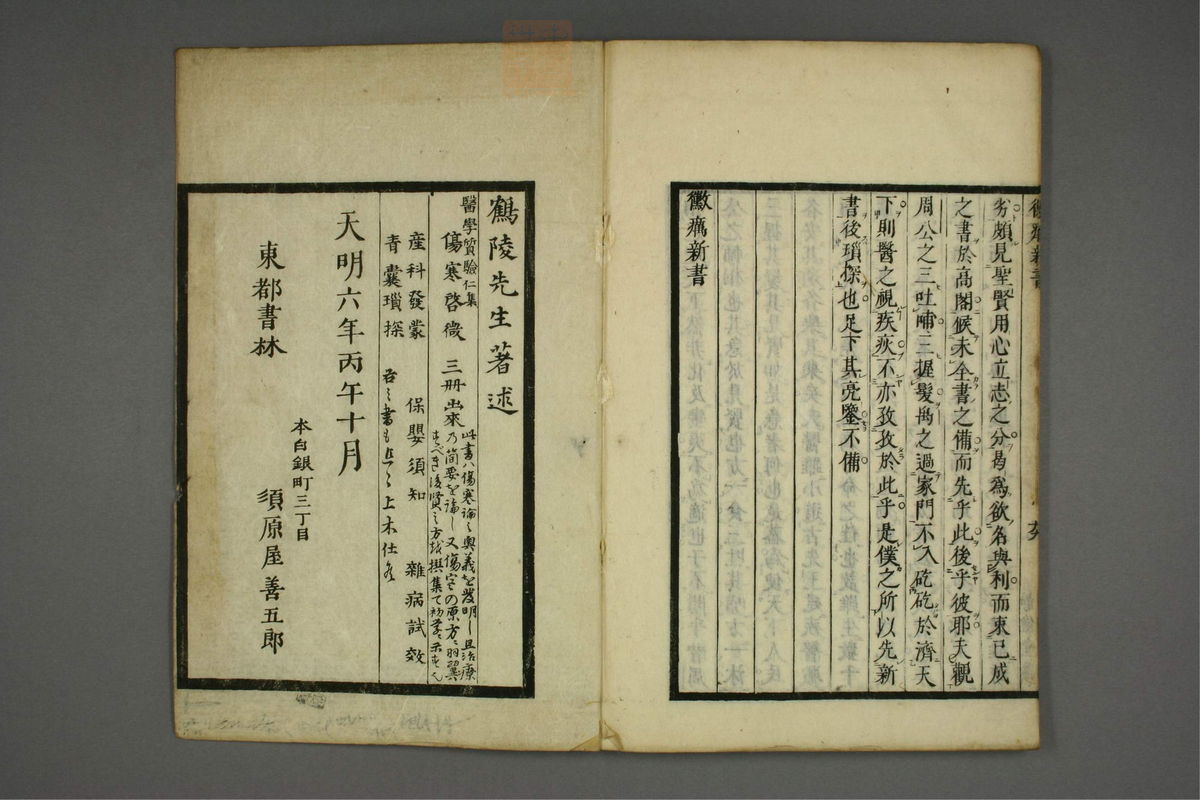 劣頗見聖賢用心立志之分曷為欲名與利而束已成
之書於高閣候未全書之備而先乎此後乎彼耶夫觀
周公之三吐哺三握髮禹之過家門不入矻矻於濟天
下則醫之視疾疢不亦孜孜於此乎是僕之所以先新
書後瑣探也足下其亮鑒不備
黴癘新書
鶴陵先生著述
醫學質驗仁集
傷寒啓微 三册出來
此書ハ傷寒論之奥義を發明し且治療
乃簡要を論し又傷寒の原方羽翼
すべき後賢之方を撰集て初学に示す
産科發蒙 保嬰須知 雜病試效
青囊瑣探 右之書も追々上木仕候
天明六年丙午十月
本白銀町三丁目
東都書林 須原屋善五郎